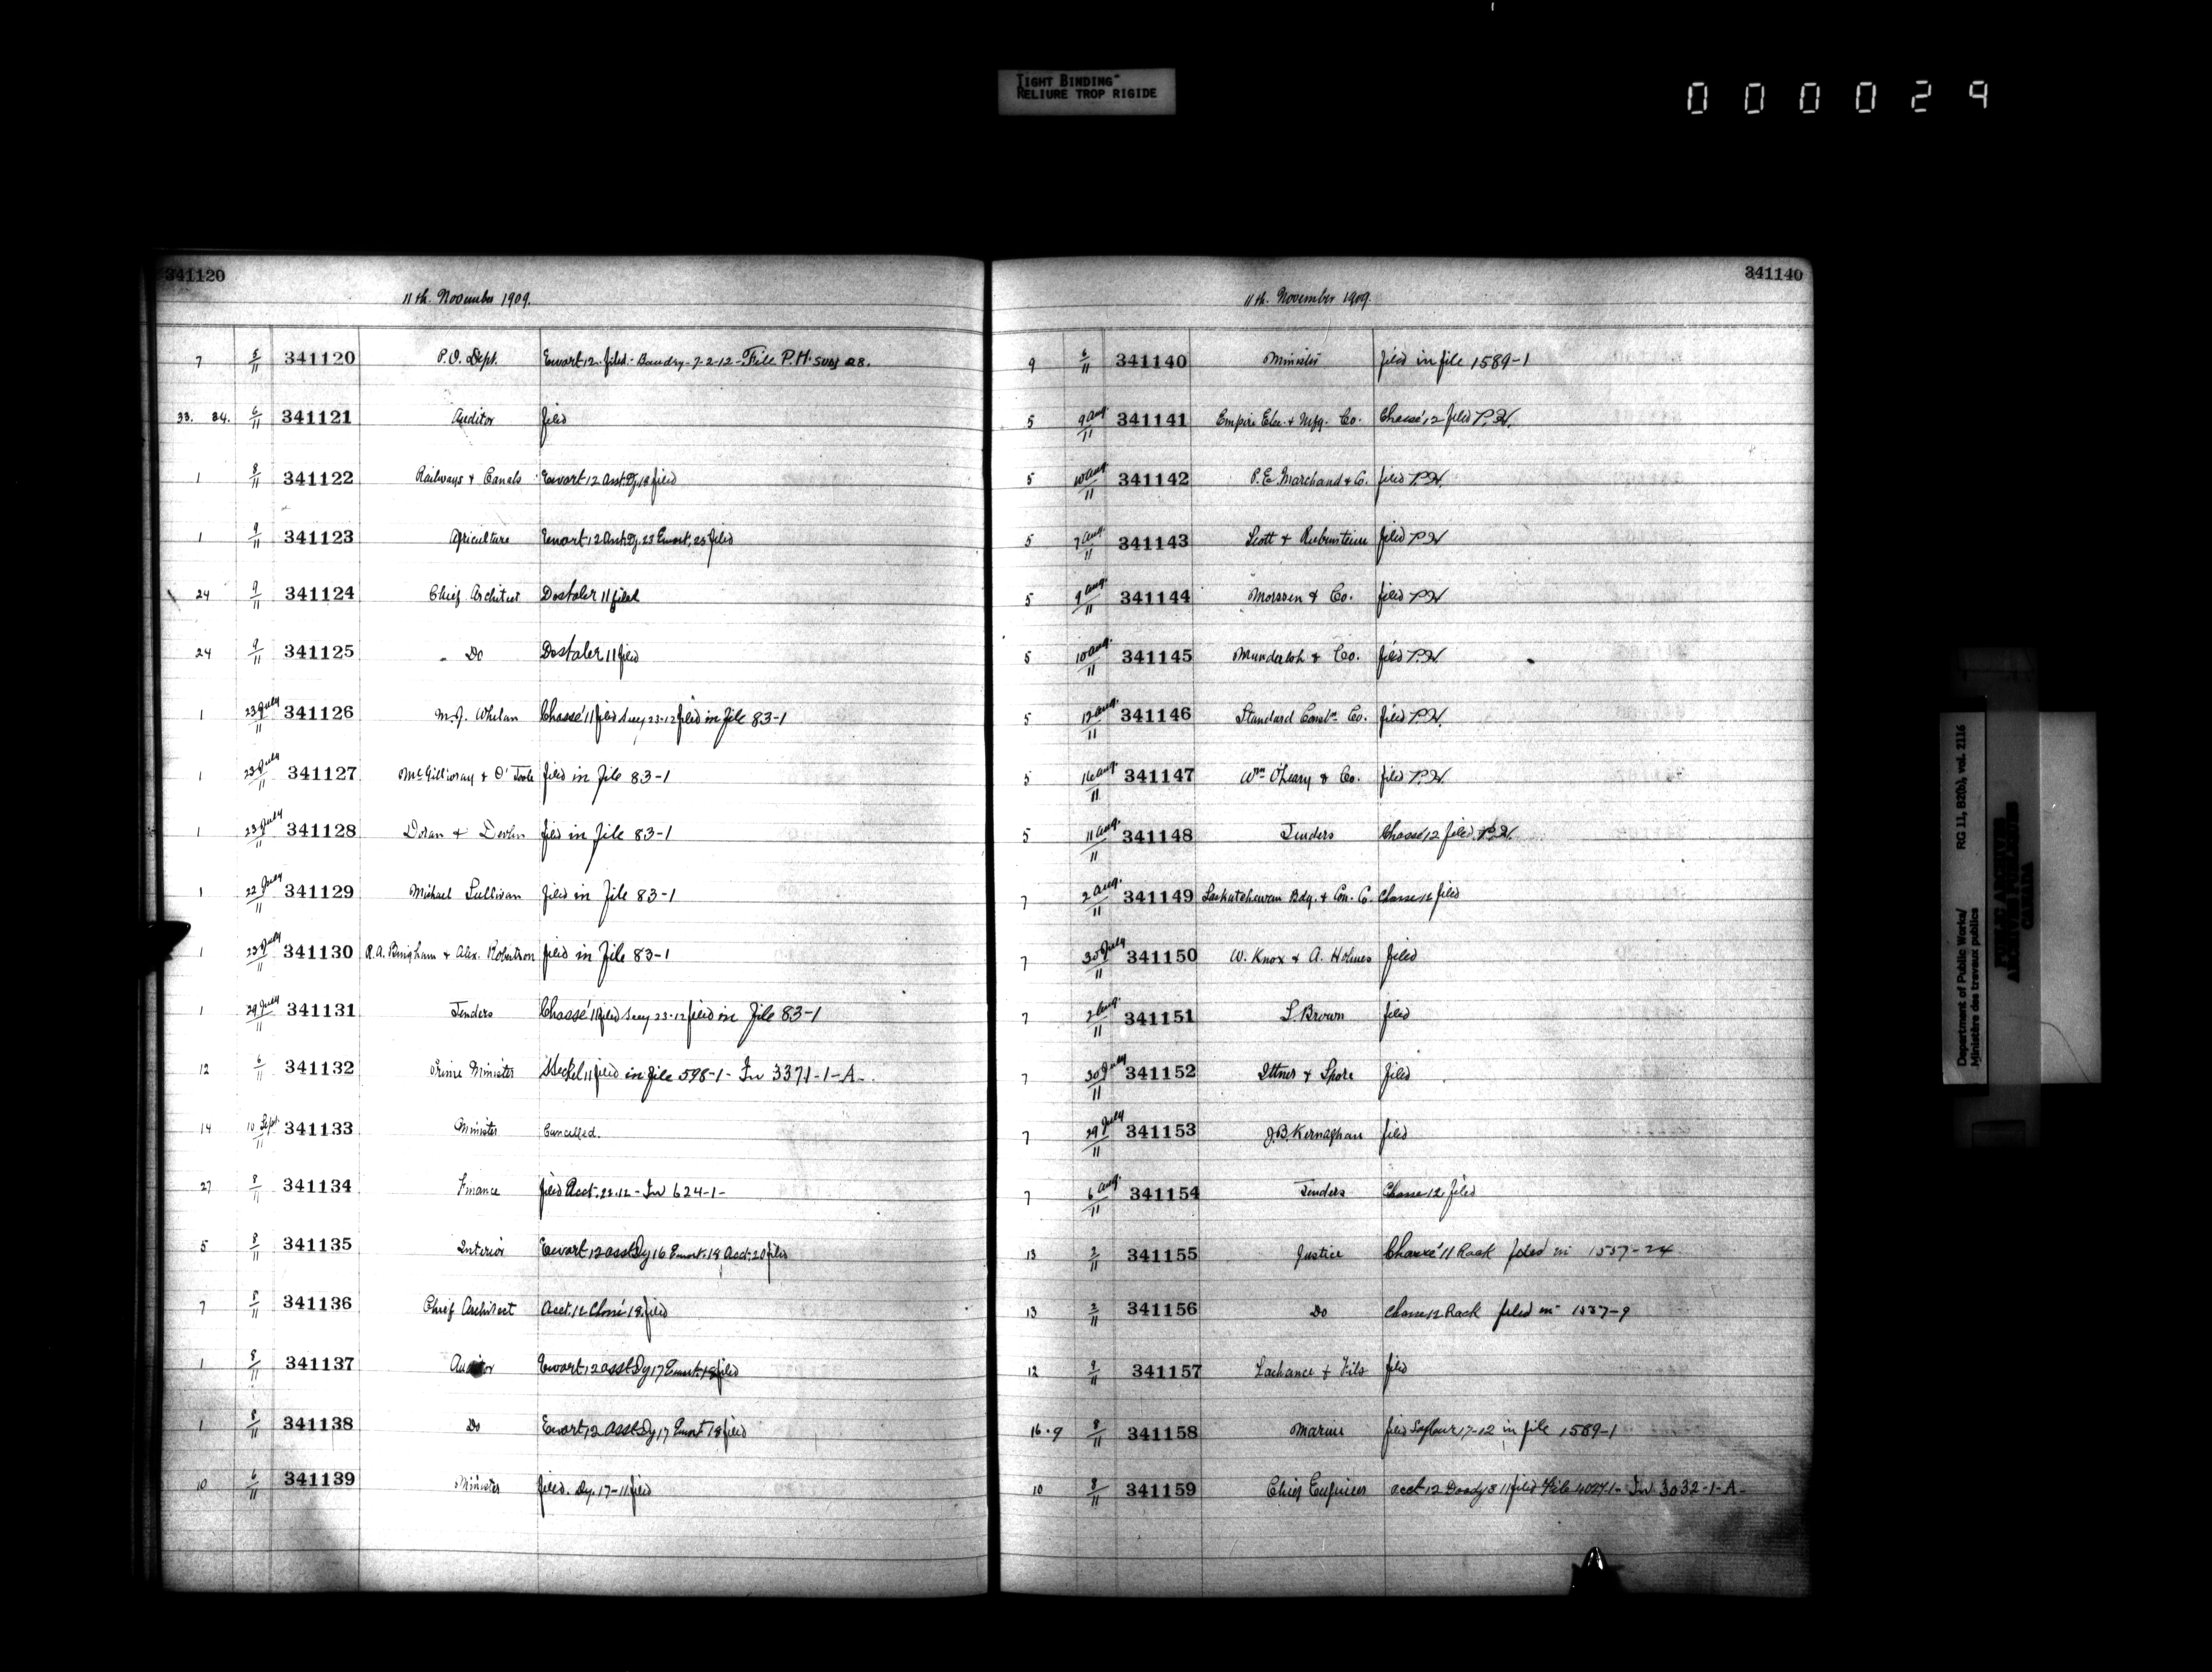 TIGHT BINDING"
RELIURE TROP RIGIDE
000029
341120
11th. November 1909.
7 8/11 341120 P.O. Dept. Ewart 12 filed - Baudry - 7-2-12 - File P.H.
33. 34. 6/11 341121 Auditor filed
1 8/11 341122 Railways & Canals Ewart 12 Asst. Dy. 18 filed
1 9/11 341123 Agriculture Ewart 12 Asst. Dy. 23 Ewart, 25 filed
24 9/11 341124 Chief Architect Dostaler 11 filed
24 9/11 341125 Do Dostaler 11 filed
1 23 July/11 341126 M.J. Whelan Chassé 11 filed Secy 23-12 filed in File 83-1
1 23 July/11 341127 McGillivray & O'Toole filed in File 83-1
1 23 July/11 341128 Doran & Devlin filed in File 83-1
1 22 July/11 341129 Michael Sullivan filed in File 83-1
1 23 July/11 341130 R.A. Bingham & Alex. Robertson filed in File 83-1
1 29 July/11 341131 Tenders Chassé 11 filed Secy 23-12 filed in File 83-1
12 6/11 341132 Prime Minister Steckel 11 filed in File 598-1- In 3371-1-A-
14 10 Sept./11 341133 Minister Cancelled.
27 8/11 341134 Finance filed Acct. 22.12 - In 624-1-
5 8/11 341135 Interior Ewart 12 asst Dy 16 Ewart. 18 Acct. 20 filed
7 8/11 341136 Chief Architect Acct. 12 Chassé 18. filed
1 8/11 341137 Auditor Ewart 12 asst Dy 17 Ewart 18 filed
1 8/11 341138 Do Ewart 12 asst Dy 17 Ewart 18 filed
10 6/11 341139 Minister filed. Dy. 17-11 filed
341140
11th. November 1909.
9 6/11 341140 Minister filed in file 1589-1
5 9 Aug/11 341141 Empire Elec. & Mfg. Co. Chassé 12 filed P.H.
5 10 Aug/11 341142 P.E. Marchand & C. filed P.H.
5 7 Aug./11 341143 Scott & Rubenstein filed P.H.
5 9 Aug./11 341144 Morssen & Co. filed P.H.
5 10 Aug./11 341145 Munderloh & Co. filed P.H.
5 12 Aug./11 341146 Standard Constn. Co. filed P.H.
5 16 Aug./11 341147 Wm. O'Leary & Co. filed P.H.
5 11 Aug./11 341148 Tenders Chassé 12 filed P.H.
7 2 Aug./11 341149 Saskatchewan Bdg. & Con. C. Chasse 12 filed
7 30 July/11 341150 W. Knox & A. Holmes filed
7 2 Aug./11 341151 S. Brown filed
7 30 July/11 341152 Ittner & Shore filed
7 29 July/11 341153 J.B. Kernaghan filed
7 6 Aug./11 341154 Tenders Chasse 12 filed
13 2/11 341155 Justice Chassé 11 Rack filed in 1537-24
13 2/11 341156 Do Chasse 12 Rack filed in 1537-9
12 9/11 341157 Lachance & Fils filed
16.9 8/11 341158 Marine filed 17-12 in file 1589-1
10 8/11 341159 Chief Engineer acct 12 filed File In 3032-1-A-
Department of Public Works/
Ministère des travaux publics
RG 11, B2(b), vol. 2116
PUBLIC ARCHIVES
ARCHIVES PUBLIQUES
CANADA